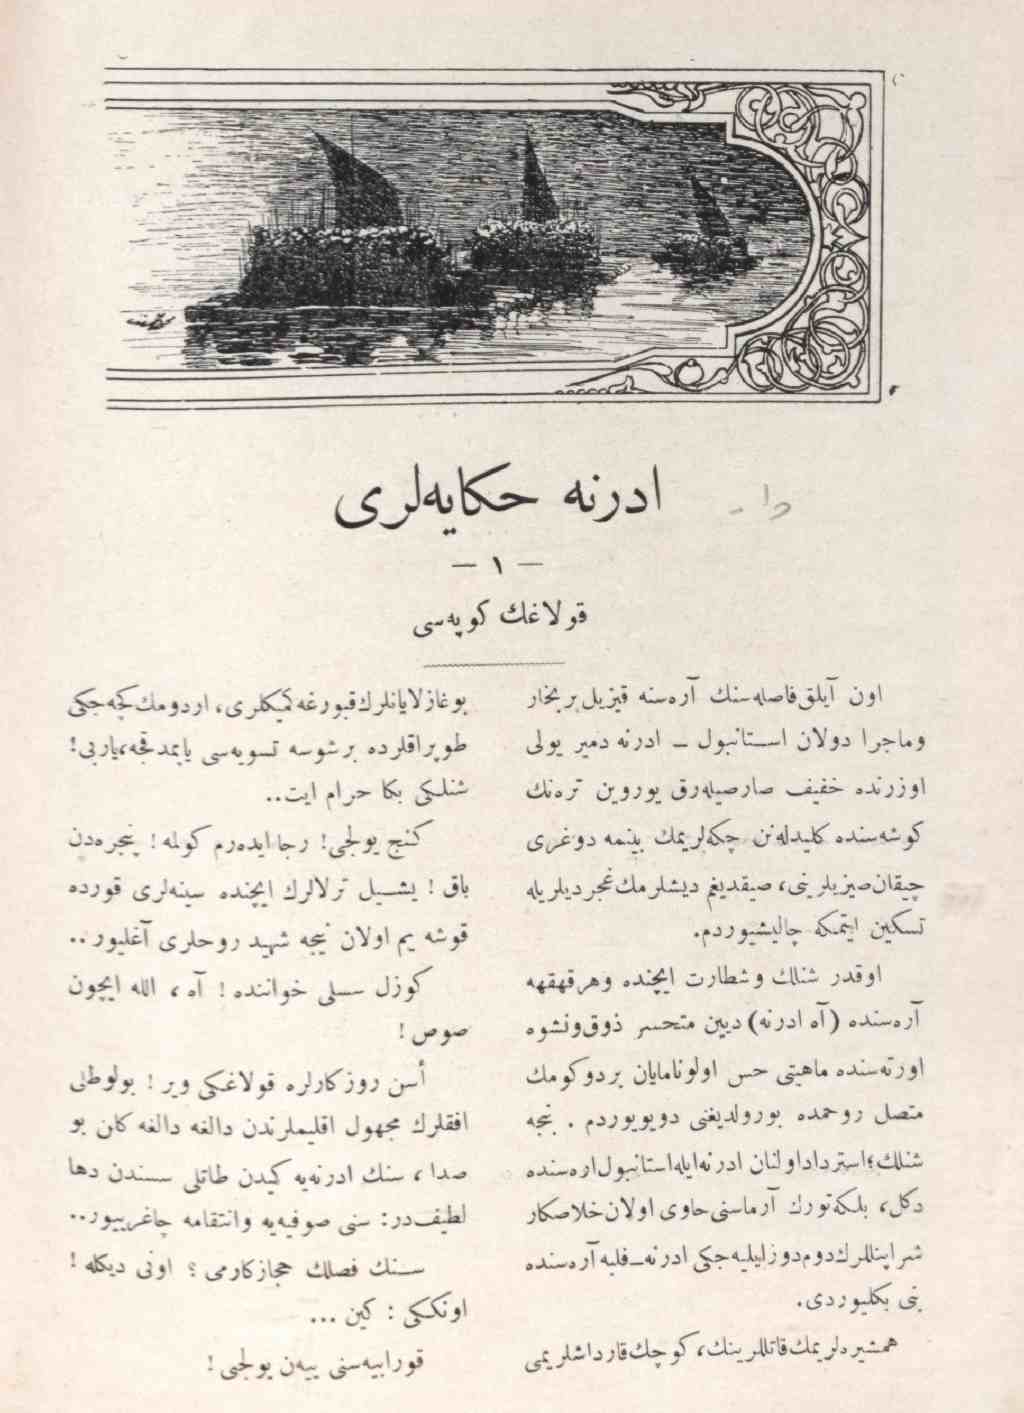 ادرنه حکایه‌لری
— ١ —
قولاغك کوپه‌سی
اون آیلق فاصله‌سنك آره‌سنه قیزیل بر بخار
وماجرا دولان استانبول ــ ادرنه دمیر یولی
اوزرنده خفیف صارصیله‌رق یوروین ترەنك
کوشه‌سنده کلیدله‌نن چکه‌لریمك بینمه دوغری
چیقان صیزیلرینی، صیقدیغم دیشلرمك غجردیلریله
تسکین ایتمکه چالیشیوردم.
اوقدر شنلك وشطارت ایچنده وهر قهقهه
آره‌سنده (آه ادرنه) دیین متحسر ذوق‌ونشوه
اورته‌سنده ماهیتی حس اولونامایان بردوکومك
متصل روحمده بورولدیغنی دویویوردم . نیجه
شنلك؛ استرداد اولنان ادرنه ایله استانبول اره‌سنده
دکل، بلکه تورك آرماسنی حاوی اولان خلاصکار
شراپنللرك دوم دوز ایلیه‌جکی ادرنه ــ فلبه آره‌سنده
بنی بکلیوردی.
همشیره‌لریمك قاتللرینك، کوچك قارداشلریمی
بوغازلایانلرك قبورغه کمیکلری، اردومك کچه‌جکی
طوپراقلرده بر شوسه تسویه‌سی یاپمدقجه، یاربی!
شنلکی بکا حرام ایت..
کنج یولجی! رجا ایده‌رم کولمه! پنجره‌دن
باق! یشیل ترلالرك ایچنده سینه‌لری قورده
قوشه یم اولان نیجه شهید روحلری آغلیور..
کوزل سسلی خواننده! آه، الله ایچون
صوص!
أسن روزکارلره قولاغکی ویر! بولوطلی
افقلرك مجهول اقلیملرندن دالغه دالغه کلن بو
صدا، سنك ادرنه‌یه کیدن طاتلی سسندن دها
لطیف‌در: سنی صوفیه‌یه وانتقامه چاغرییور..
سنك فصلك حجازکارمی؟ اونی دیکله!
اونککی: کین ...
قورابیه‌سنی ییه‌ن یولجی!